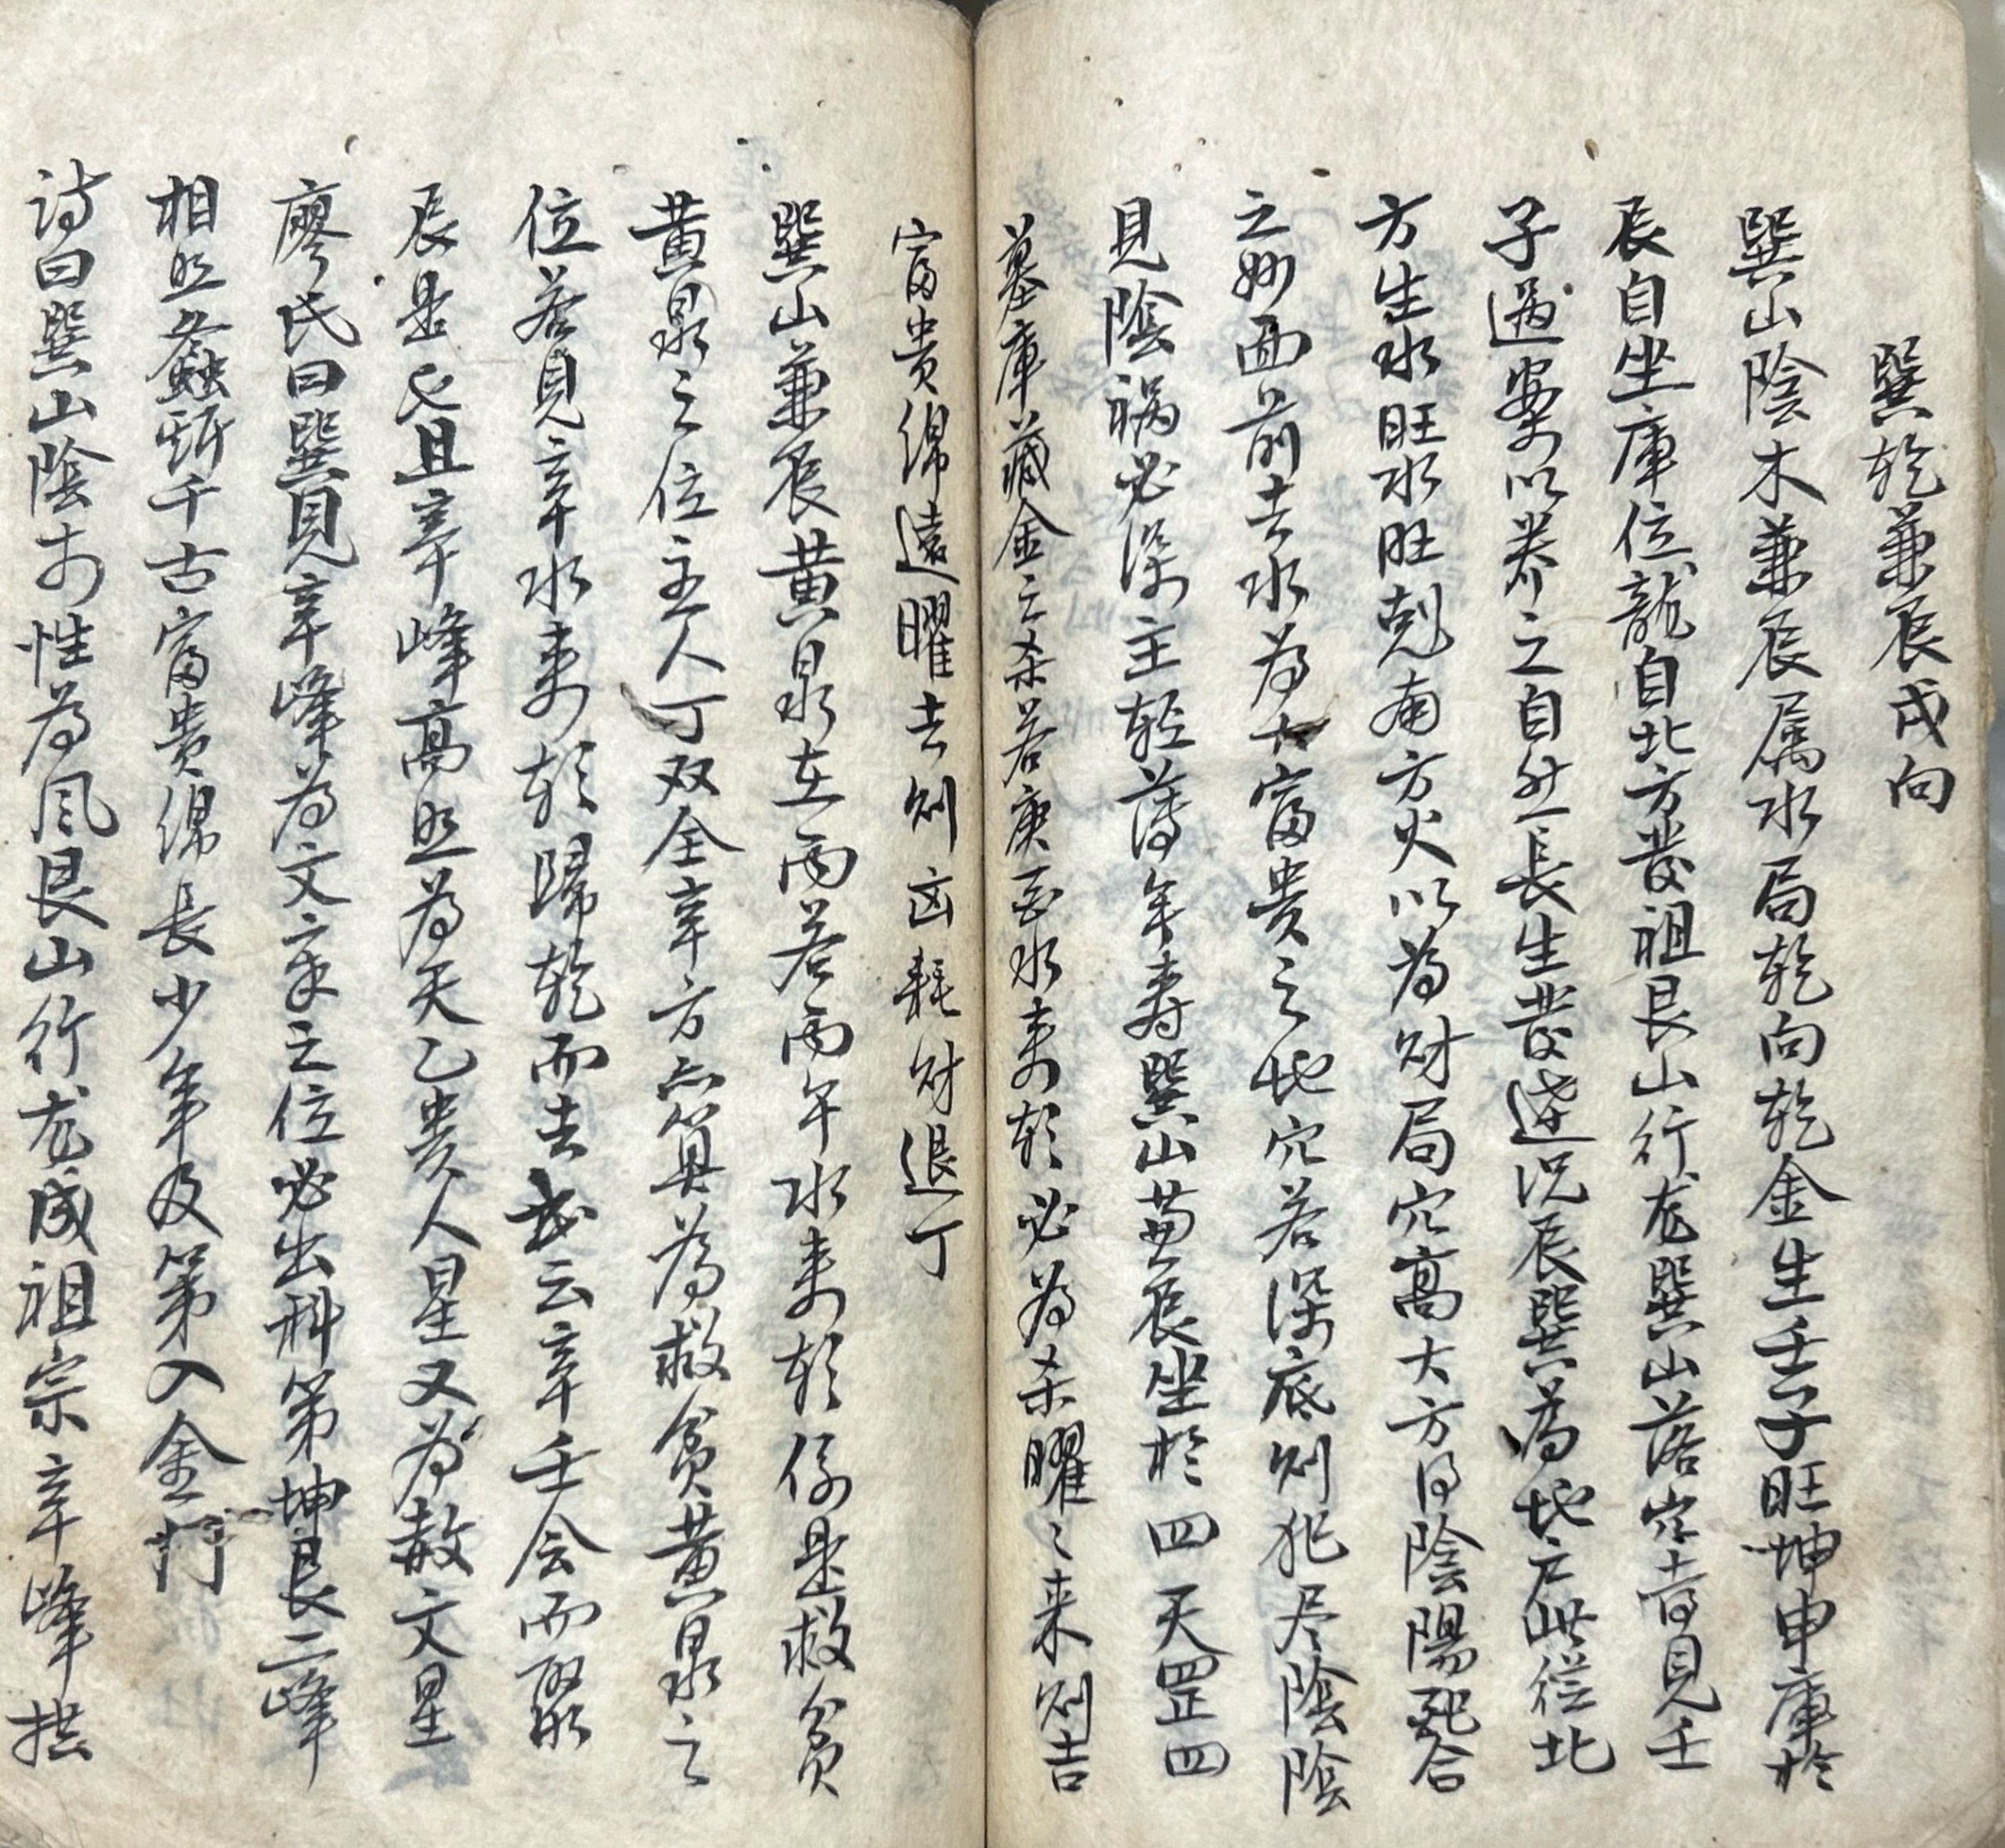 巽乾兼辰戌向
巽山陰木兼辰属水局乾向乾金生壬子旺坤申庫於
辰自坐庫位龍自北方發祖艮山行龙巽山落穴喜見壬
子過案以养之自然長生發達况辰巽為地户此從北
方生水旺水旺剋南方火以為财局穴高大方得陰陽配合
之妙面前去水為大富贵之地穴若深底则犯尽陰陰
見陰祸必深主轻薄年寿巽山兼辰坐於四天罡四
墓庫藏金之杀若庚酉水来朝必為杀曜〻来则吉
富贵绵遠曜去则凶耗财退丁
巽山兼辰黄泉在丙若丙午水来朝係是救貧
黄泉之位主人丁双全辛方亦算為救貧黄泉之
位若見辛水来朝歸乾而去或云辛壬会而聚
辰是也且辛峰高照為天乙贵人星又為赦文星
廖氏曰巽見辛峰為文章之位必出科第坤艮二峰
相照螽斯千古富贵绵長少年及第入金門
诗曰巽山陰木性為风艮山行龙成祖宗辛峰拱